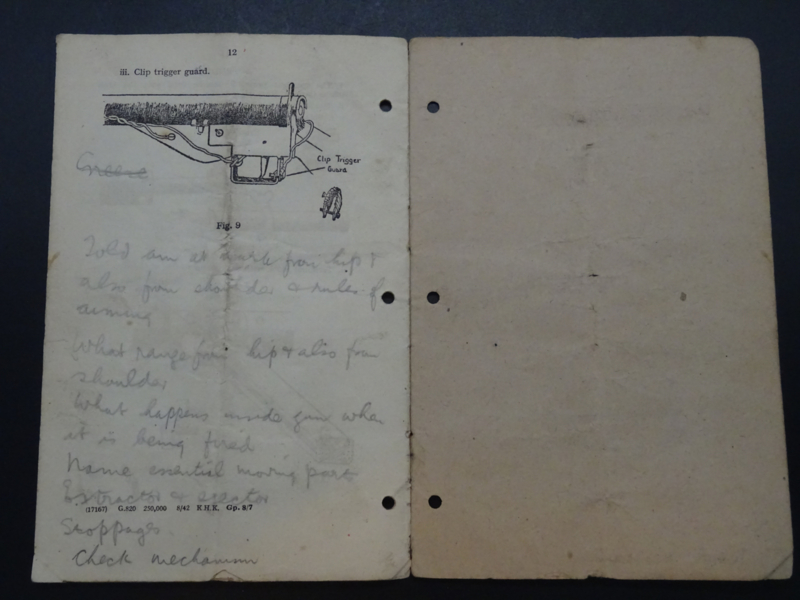 12
iii. Clip trigger guard.
Clip Trigger
Guard
Fig. 9
aim at from hip &
also from shoulder & rules of
aiming
What range from hip & also from
shoulder
What happens inside gun when
it is being fired
Name essential moving parts
Extractor & ejector
(17167) G.820 250,000 8/42 K.H.K. Gp. 8/7
Stoppages.
Check mechanism